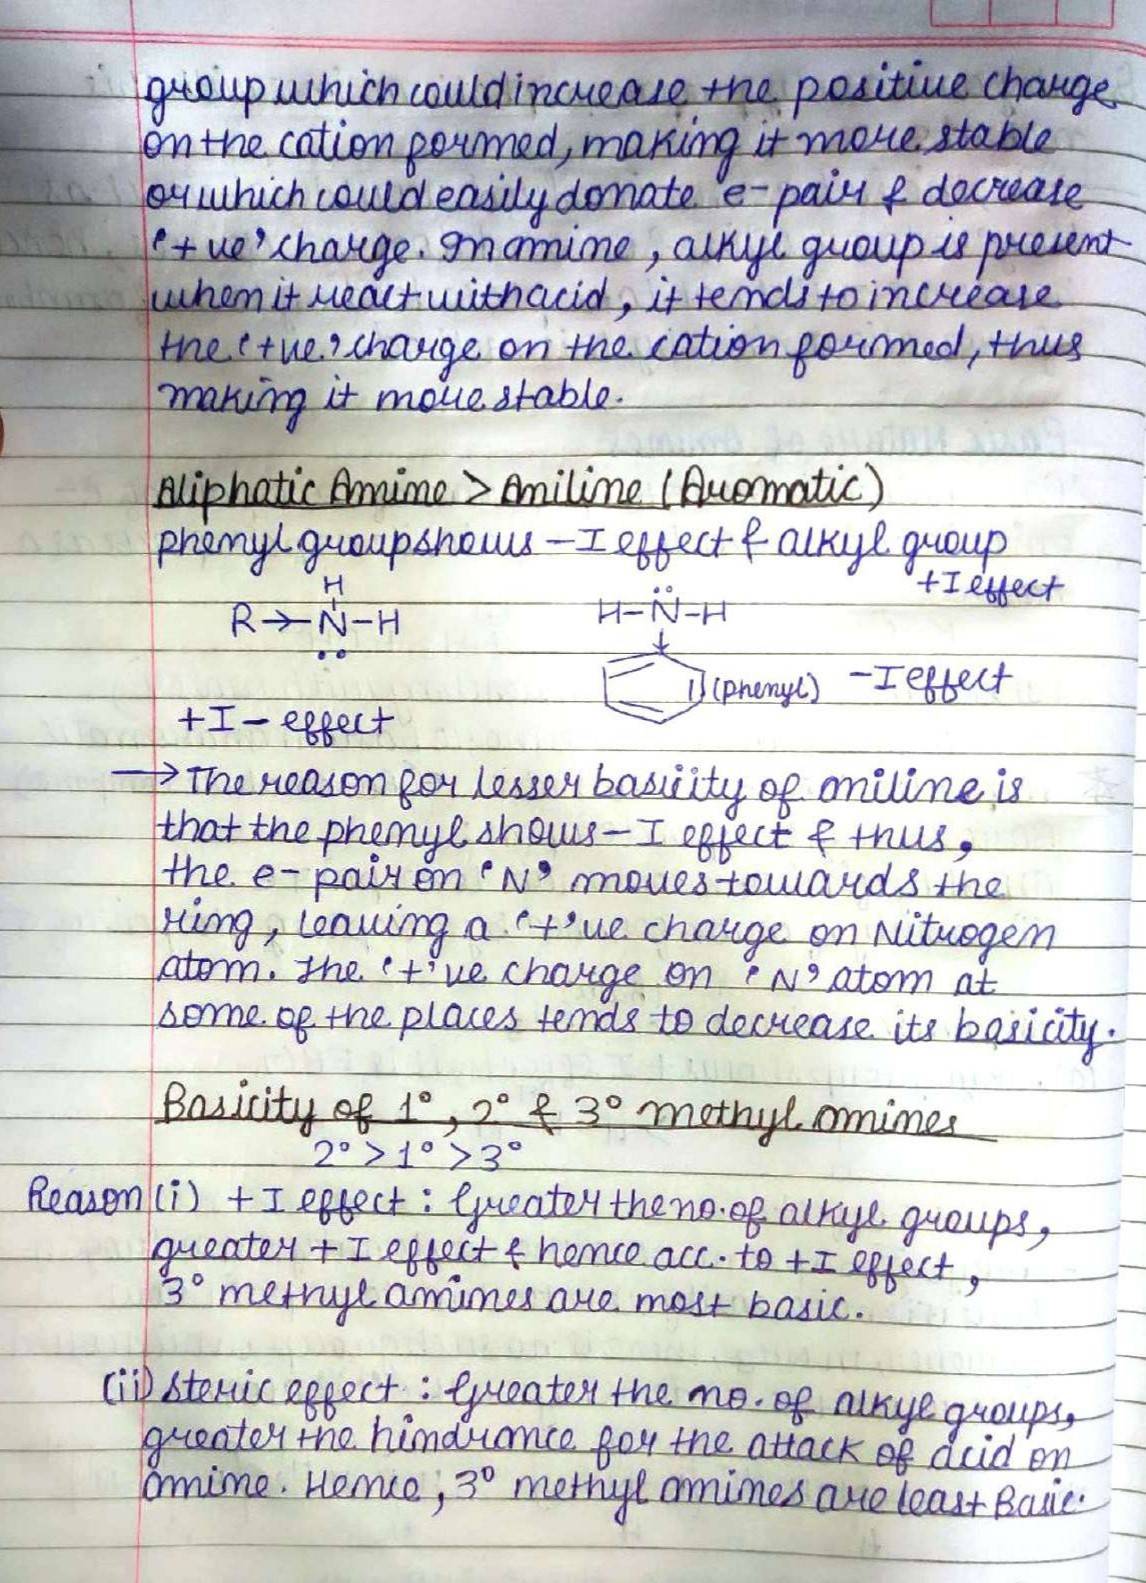 group which could increase the positive charge
on the cation formed, making it more stable
or which could easily donate e- pair & decrease
'+ve' charge. In amine, alkyl group is present
when it react with acid, it tends to increase
the '+ve' charge on the cation formed, thus
making it more stable.
Aliphatic Amine > Aniline (Aromatic)
phenyl group shows -I effect & alkyl group
+I effect
H
R→N-H
H-N-H
(phenyl) -I effect
+I- effect
→ The reason for lesser basicity of aniline is
that the phenyl shows -I effect & thus,
the e- pair on 'N' moves towards the
ring, leaving a '+'ve charge on Nitrogen
atom. The '+'ve charge on 'N' atom at
some of the places tends to decrease its basicity.
Basicity of 1°, 2° & 3° methyl amines
2° > 1° > 3°
Reason (i) +I effect : Greater the no. of alkyl groups,
greater +I effect & hence acc. to +I effect,
3° methyl amines are most basic.
(ii) Steric effect : Greater the no. of alkyl groups,
greater the hindrance for the attack of acid on
amine. Hence, 3° methyl amines are least Basic.